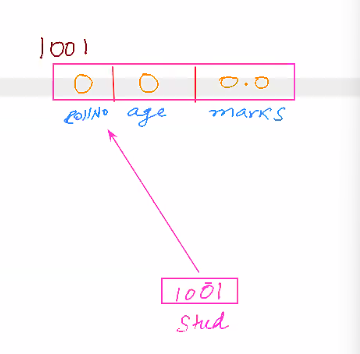 1001
0 0 0.0
RollNo age marks
1001
Stud